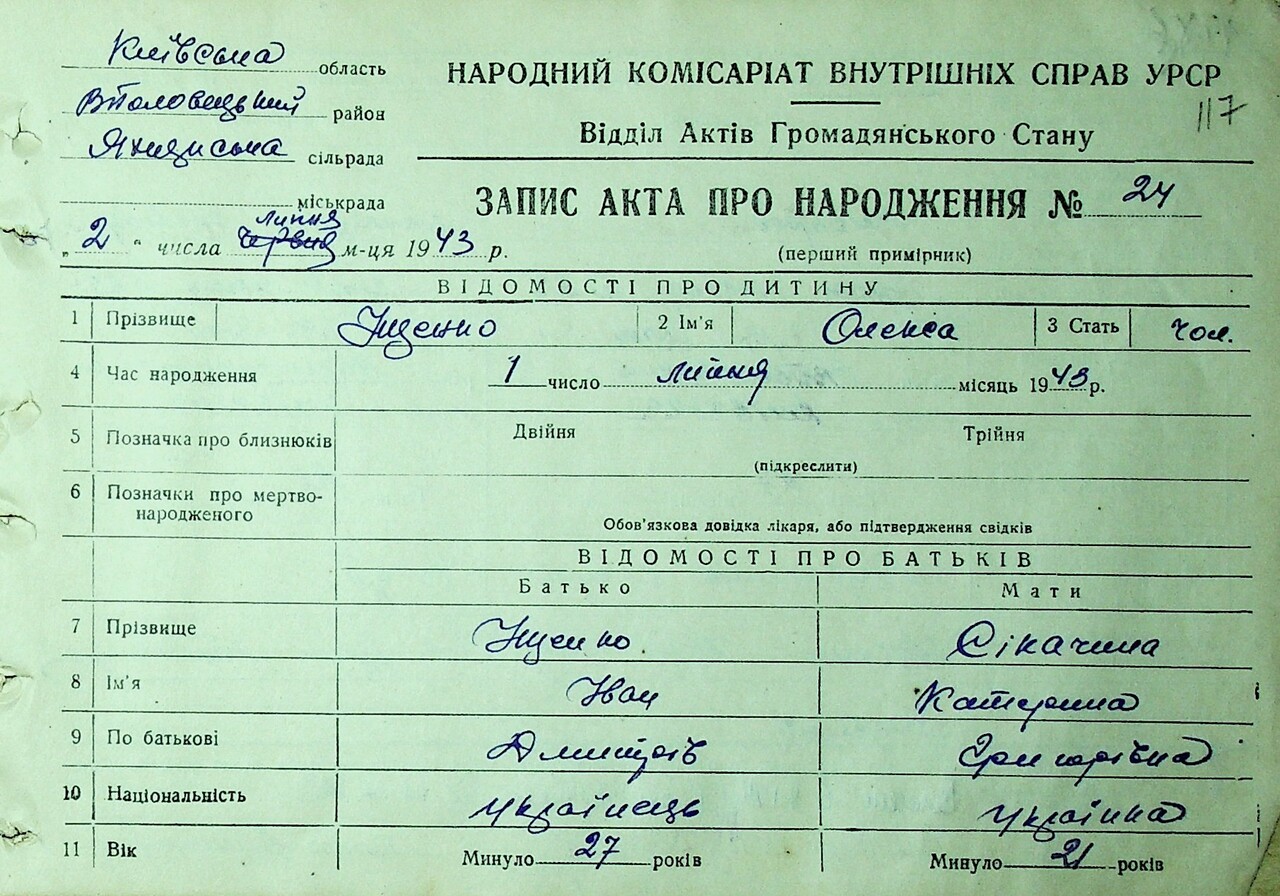 Київська область
район
сільрада
міськрада
НАРОДНИЙ КОМІСАРІАТ ВНУТРІШНІХ СПРАВ УРСР
117
Відділ Актів Громадянського Стану
ЗАПИС АКТА ПРО НАРОДЖЕННЯ № 24
(перший примірник)
липня
„2" числа червня м-ця 1943 р.
ВІДОМОСТІ ПРО ДИТИНУ
1 Прізвище Іщенко 2 Ім'я Олекса 3 Стать чол.
4 Час народження 1 число липня місяць 1943 р.
5 Позначка про близнюків Двійня Трійня
(підкреслити)
6 Позначки про мертво-
народженого
Обов'язкова довідка лікаря, або підтвердження свідків
ВІДОМОСТІ ПРО БАТЬКІВ
Батько Мати
7 Прізвище Іщенко Сікачина
8 Ім'я Іван Катерина
9 По батькові Дмитрів Григорівна
10 Національність українець українка
11 Вік Минуло 27 років Минуло 21 років